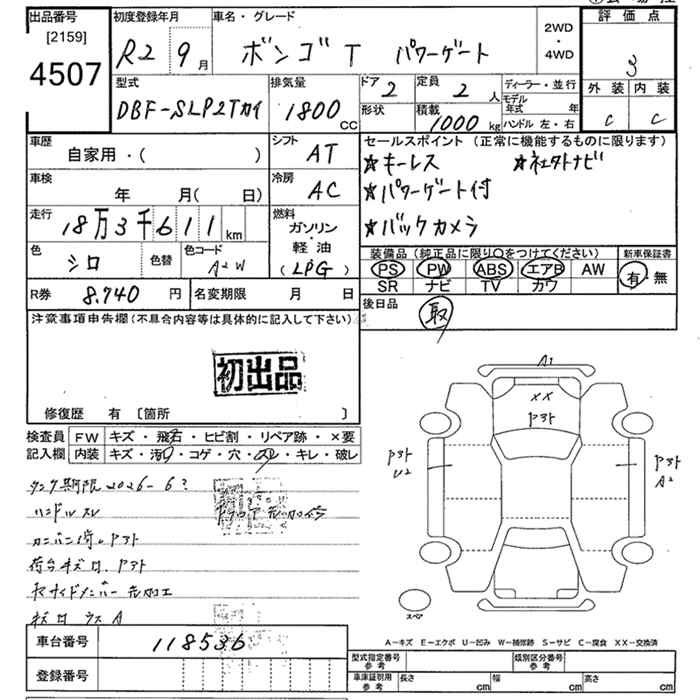 出品番号
[2159]
4507
初度登録年月
R2 9月
車名・グレード
ボンゴT パワーゲート
2WD
・
4WD
評価点
3
外装 内装
C C
型式
DBF-SLP2Tカイ
排気量
1800
CC
ドア 2
定員 2人
形状
積載 1000kg
ディーラー・並行
モデル年式 年
ハンドル 左・右
車歴
自家用・( )
シフト
AT
車検
年 月(日)
冷房
AC
走行
18万3千611km
燃料
ガソリン
軽・油
(LPG)
色
シロ
色替
色コード
A2W
セールスポイント(正常に機能するものに限ります)
★キーレス
★パワーゲート付
★バックカメラ
装備品(純正品に限り○をつけてください)
PS PW ABS エアB AW
SR ナビ TV カワ
新車保証書
有・無
R券 8,740円
名変期限 月 日
後日品
取
注意事項申告欄(不具合内容等は具体的に記入して下さい)
初出品
修復歴 有 [箇所 ]
検査員
記入欄
FW キズ・飛石・ヒビ割・リペア跡・×要
内装 キズ・汚れ・コゲ・穴・スレ・キレ・破レ
タンク期限2026-6?
ハンドルスレ
荷台キズロ、アト
A1
XX
アト
アト
U2
アト
A2
スペア
A-キズ E-エクボ U-凹み W-補修跡 S-サビ C-腐食 XX-交換済
車台番号
118536
登録番号
型式指定番号
参考
類別区分番号
参考
車庫証明用
参考
長さ cm 幅 cm 高さ cm